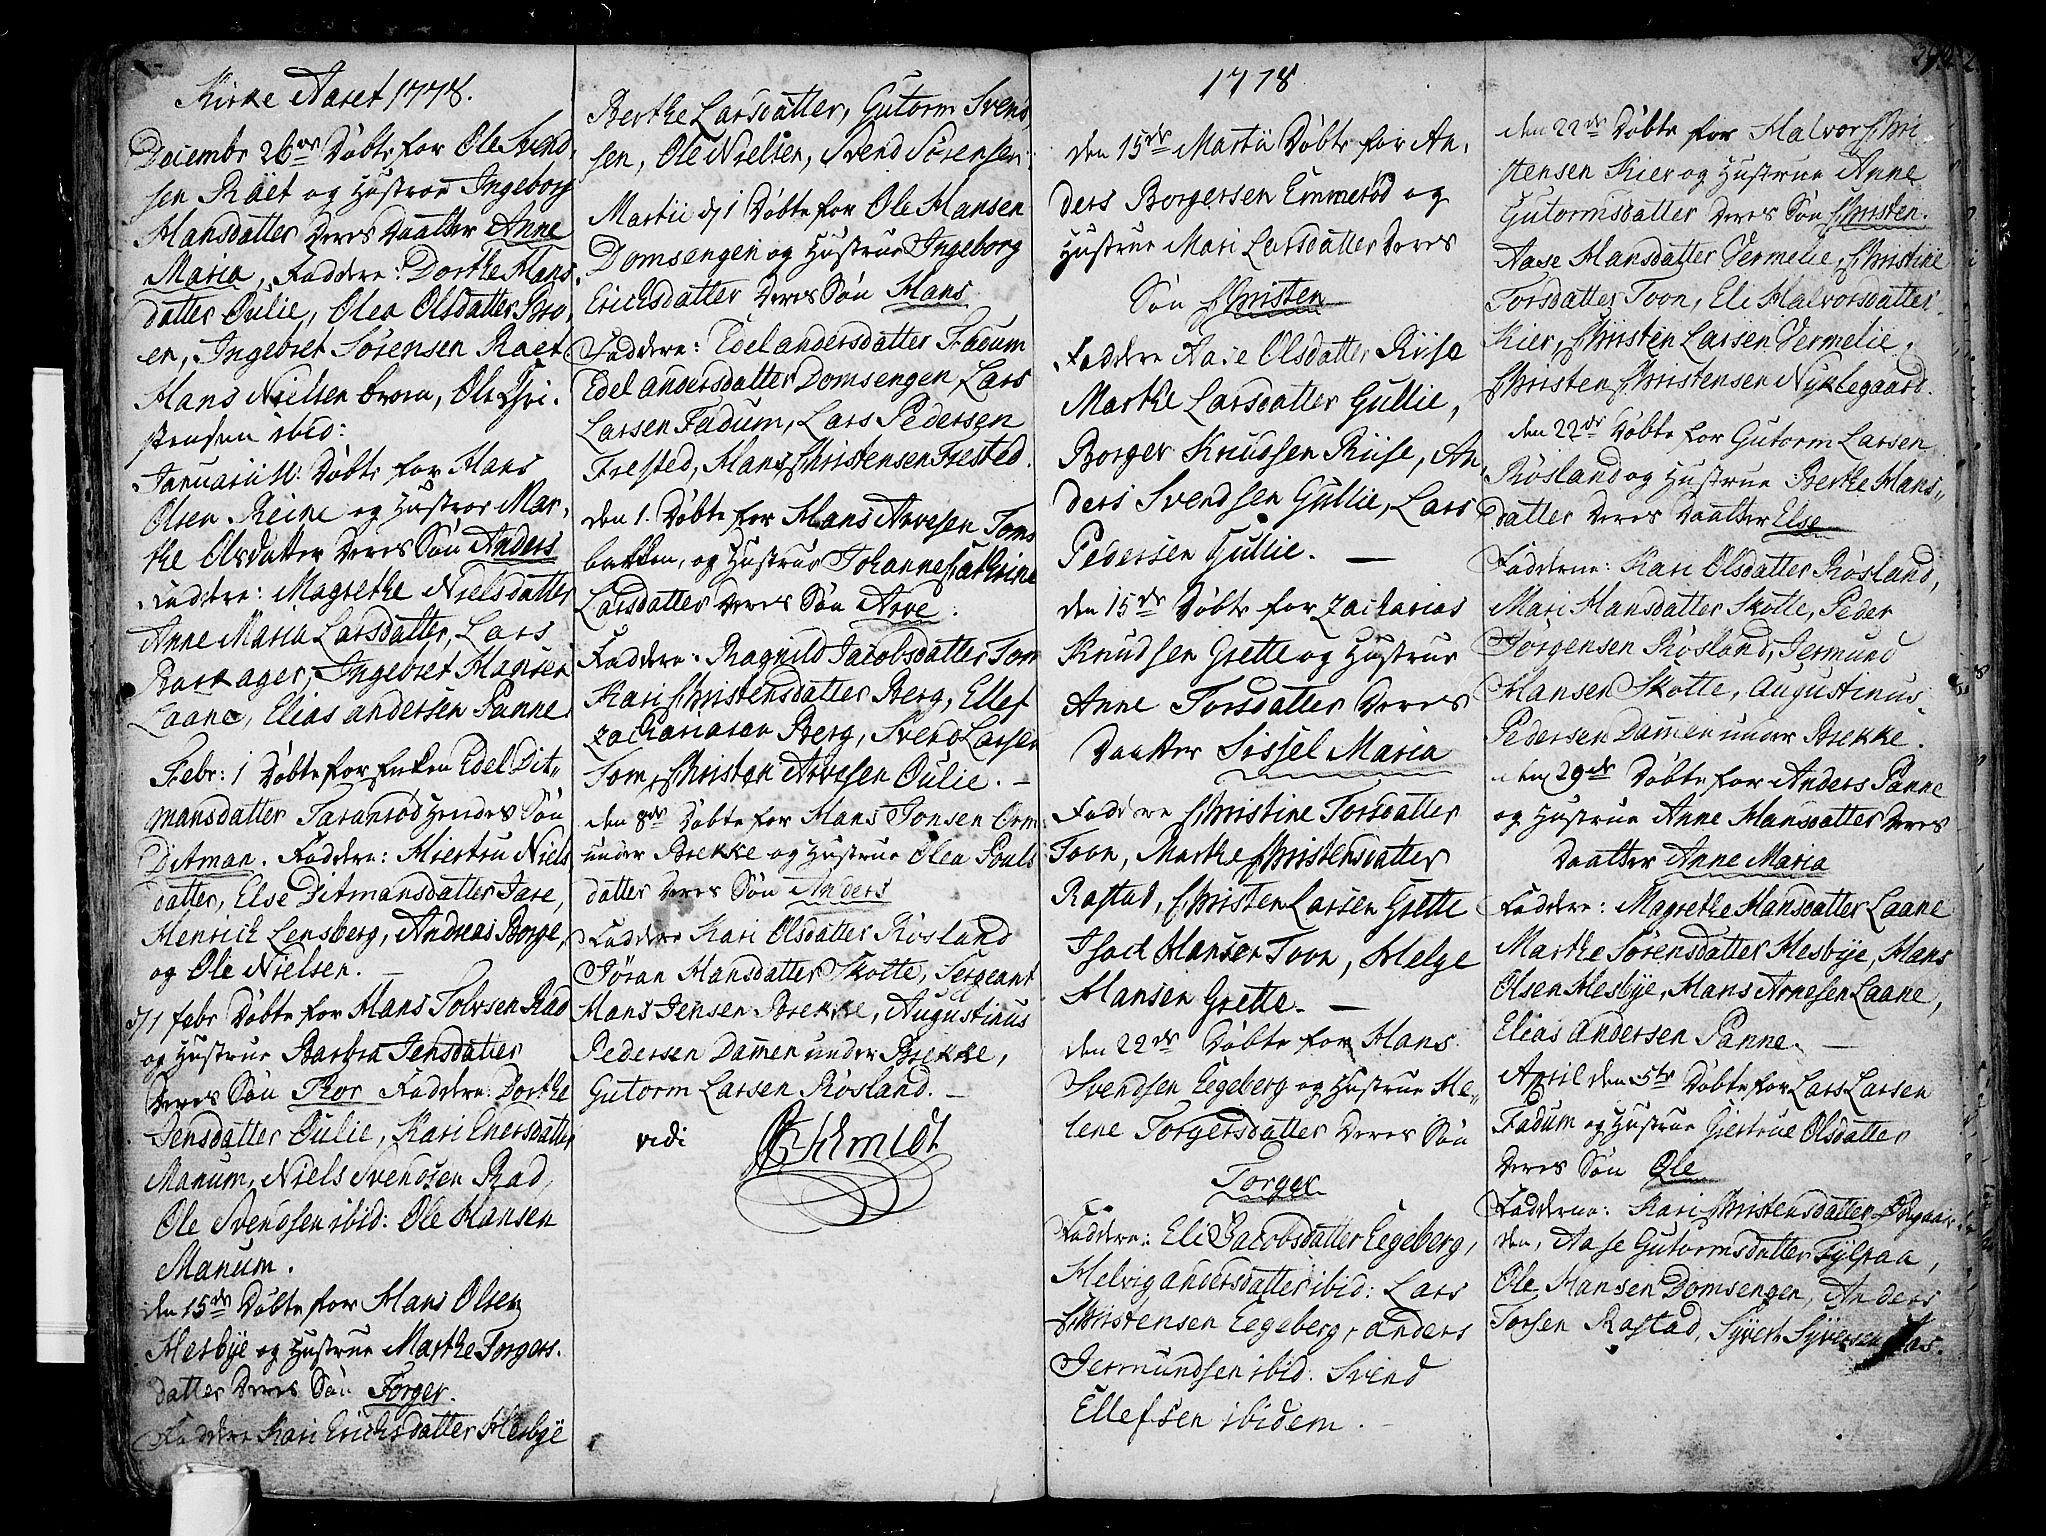 Kirke Aaret 1778.
Decembr 26de Døbte for Ole Svend,
sen Räet og Hustroe Ingeborg
Hansdatter Deres Daatter Anne
Maria, Faddere: Dorthe Hans,
datter Øulie, Olea Olsdatter Bro,
en, Ingebret Sørensen Raet
Hans Nielsen Broen, Ole Chri,
stensen ibid:
Januarii 11: Døbte for Hans
Olsen Reine og Hustroe Mar,
the Olsdatter Deres Søn Anders
Faddere: Magrethe Nielsdatter
Anne Maria Larsdatter, Lars
Ingebret Hansen
Laane, Elias andersen Panne
Febr: 1 Døbte for Enken Edel Dit,,
mansdatter Taranrød Hendes Søn
Ditman. Faddere: Niels
datter, Else Ditmansdatter Jare,
Henrich Lensberg, Andreas Borge,
og Ole Nielsen.
d/1 febr Døbte for Hans Tolvsen Rad
og Hustrue Barbra Jensdatter
Deres Søn Thor Faddere: Dorthe
Jensdatter Øulie, Kari Enersdatter
Manum, Niels Svendsen Rad,
Ole Svendsen ibid: Ole Hansen
Manum.
den 15de Døbte for Hans Olsen
Hesbÿe og Hustrue Marthe Torgers,
datter Deres Søn Torger.
Faddere Kari Erichsdatter Hesbÿe
Berthe Larsdatter, Gutorm Svend,
sen, Ole Nielsen, Svend Sørensen
Martii d/1 Døbte for Ole Hansen
Domsengen og Hustrue Ingeborg
Erichsdatter Deres Søn Hans
Faddere: Edel andersdatter Fadum
Edel andersdatter Domsengen, Lars
Larsen Fadum, Lars Pedersen
Frested, Hans Christensen Frested.
den 1. Døbte for Hans Arvesen Toms
bakken, og Hustrue Johanne Cathrine
Larsdatter Deres Søn Arve:
Faddere: Ragnild Jacobsdatter Tom
Kari Christensdatter Berg, Ellef
Zachariasen Berg, Svend Larsen
Tom, Christen Arvesen Øulie. –
den 8de Døbte for Hans Jonsen Orm
under Brekke og Hustrue Olea Pouls
datter Deres Søn Anders
Faddere Kari Olsdatter Røsland
Jöran Hansdatter Skotte, Sergeant
Hans Jensen Brekke, Augustinus
Pedersen Damen under Brekke,
Gutorm Larsen Røsland. –
vidi Schmidt
1778
den 15de Martii Døbte for An,
ders Borgersen Emmerød og
Hustrue Mari Larsdatter Deres
Søn Christen
Faddere Aase Olsdatter Riise
Marthe Larsdatter Gullie,
Borger Knudsen Riise, An,
ders Svendsen Gullie, Lars
Pedersen Gullie. –
den 15de Døbte for Zacharias
Knudsen Grette og Hustrue
Anne Torsdatter Deres
Daatter Sissel Maria
Faddere Christine Torsdatter
Toon, Marthe Christensdatter
Rastad, Christen Larsen Grette
Isach Hansen Toon, Helge
Hansen Grette. –
den 22de Døbte for Hans
Svendsen Eegeberg og Hustrue He,,
lene Torgersdatter Deres Søn
Torger
Faddere: Eli Jacobsdatter Eegeberg,
Helvig andersdatter ibid: Lars
Christensen Eegeberg, anders
Jermundsen ibid: Svend
Ellefsen ibidem.
392
den 22de Døbte for Halvor Chri
stensen Kier og Hustrue Anne
Gutormsdatter Deres Søn Christen.
Aase Hansdatter Vermelie, Christine
Torsdatter Toon, Eli Halvorsdatter
Kier, Christen Larsen Vermelie,
Christen Christensen Nyklegaard.
den 22de Døbte for Gutorm Larsen
Røsland og Hustrue Berthe Hans,,
datter Deres Daatter Else
Fadderne: Kari Olsdatter Røsland,
Mari Hansdatter Skotte, Peder
Jörgensen Røsland, Jermund
Hansen Skotte, Augustinus
Pedersen Damen under Brekke.
den 29de Døbte for Anders Panne
og Hustrue Anne Hansdatter Deres
Daatter Anne Maria
Faddere: Magrethe Hansdatter Laane
Marthe Sørensdatter Hesbÿe, Hans
Olsen Hesbÿe, Hans Arnesen Laane,
Elias andersen Panne. –
April den 5te Døbte for Lars Larsen
Fadum og Hustrue Giertrue Olsdatter
Deres Søn Ole
Fadderne: Kari Christensdatter
den, Aase Gutormsdatter Fÿlpaa,
Ole Hansen Domsengen, Anders
Torsen Rastad, Sÿvert Sÿversen Aas.